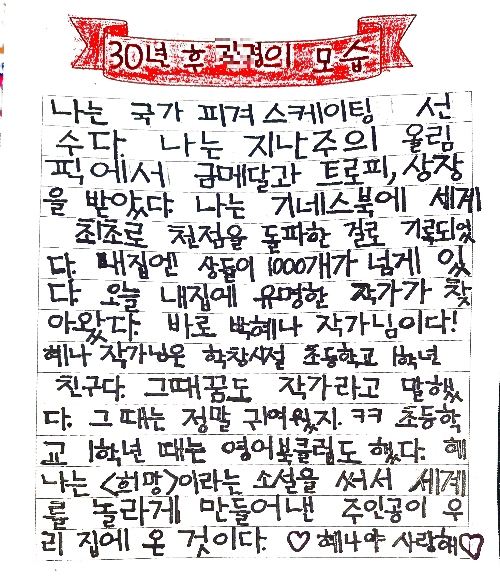 30년 후 의 모습
나는 국가 피겨 스케이팅 선
수다. 나는 지난주의 올림
픽에서 금메달과 트로피, 상장
을 받았다. 나는 기네스북에 세계
최초로 천점을 돌파한 걸로 기록되었
다. 내집엔 상들이 1000개가 넘게 있
다. 오늘 내집에 유명한 작가가 찾
아왔다. 바로 박혜나 작가님이다!
혜나 작가님은 학창시절 초등학교 1학년
친구다. 그때꿈도 작가라고 말했
다. 그 때는 정말 귀여웠지. ㅋㅋ 초등학
교 1학년 때는 영어북클럽도 했다. 혜
나는 <희망>이라는 소설을 써서 세계
를 놀라게 만들어낸 주인공이 우
리 집에 온 것이다. ♡ 혜나야 사랑해♡